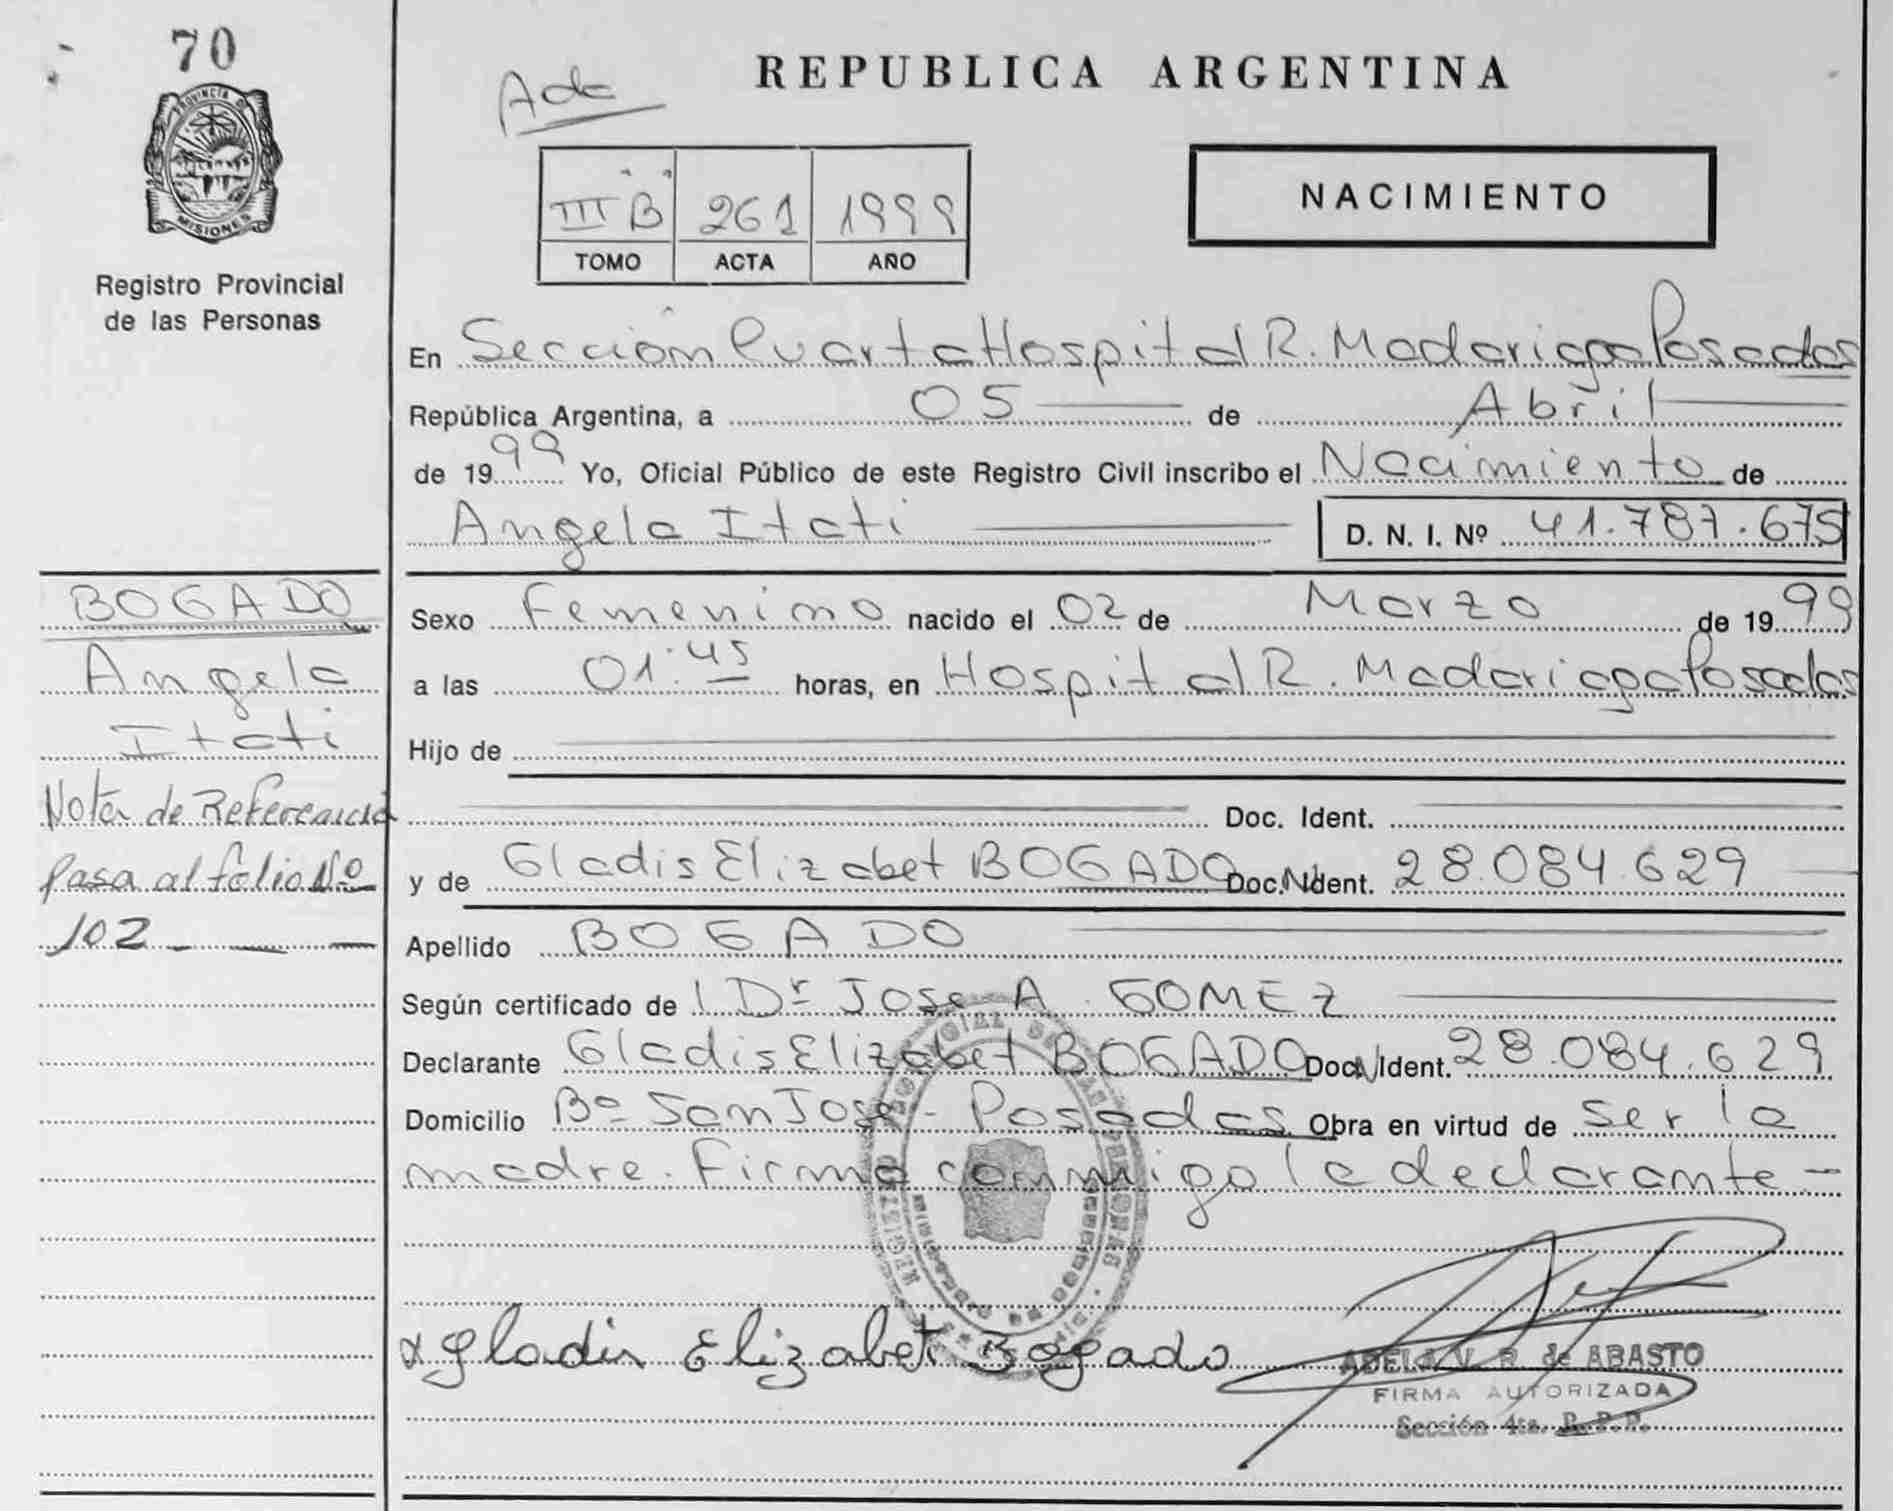 70
PROVINCIA DE
MISIONES
Registro Provincial
de las Personas
BOGADO
Angela
Itati
Nota de Referencia
Pasa al folio Nº
102
REPUBLICA ARGENTINA
III B 261 1999
TOMO ACTA AÑO
NACIMIENTO
En Sección Cuarta Hospital R. Madariaga Posadas
República Argentina, a 05 de Abril
de 1999 Yo, Oficial Público de este Registro Civil inscribo el Nacimiento de
Angela Itati D. N. I. Nº 41.787.675
Sexo Femenino nacido el 02 de Marzo de 1999
a las 01:45 horas, en Hospital R. Madariaga Posadas
Hijo de
Doc. Ident.
y de Gladis Elizabet BOGADO Doc. Ident. 28.084.629
Apellido BOGADO
Según certificado de Dr Jose A. GOMEZ
Declarante Gladis Elizabet BOGADO Doc. Ident. 28.084.629
Domicilio Bº San Jose - Posadas Obra en virtud de ser la
madre. Firma conmigo la declarante -
x Gladis Elizabet Bogado
ADELA V. R. de ABASTO
FIRMA AUTORIZADA
Sección 4ta. R.P.P.